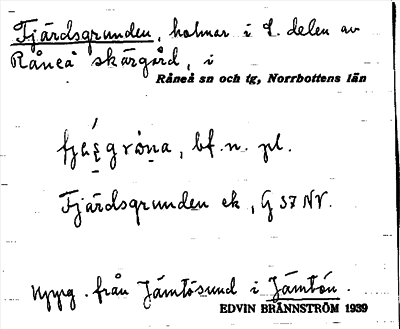 Fjärdsgrunden, holmar i Ö. delen av
Råneå skärgård, i
Råneå sn och tg, Norrbottens län
bf. n. pl.
Fjärdsgrunden ek, G 37 NV.
uppg. från Jämtösund i Jämtön.
EDVIN BRÄNNSTRÖM 1939